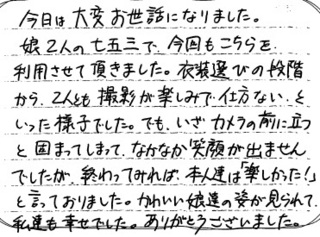 今日は大変お世話になりました。
娘2人の七五三で、今回もこちらを
利用させて頂きました。衣装選びの段階
から、2人とも撮影が楽しみで仕方ない、と
いった様子でした。でも、いざカメラの前に立つ
と固まってしまって、なかなか笑顔が出ません
でしたが、終わってみれば、本人達は「楽しかった!」
と言っておりました。かわいい娘達の姿が見られて、
私達も幸せでした。ありがとうございました。